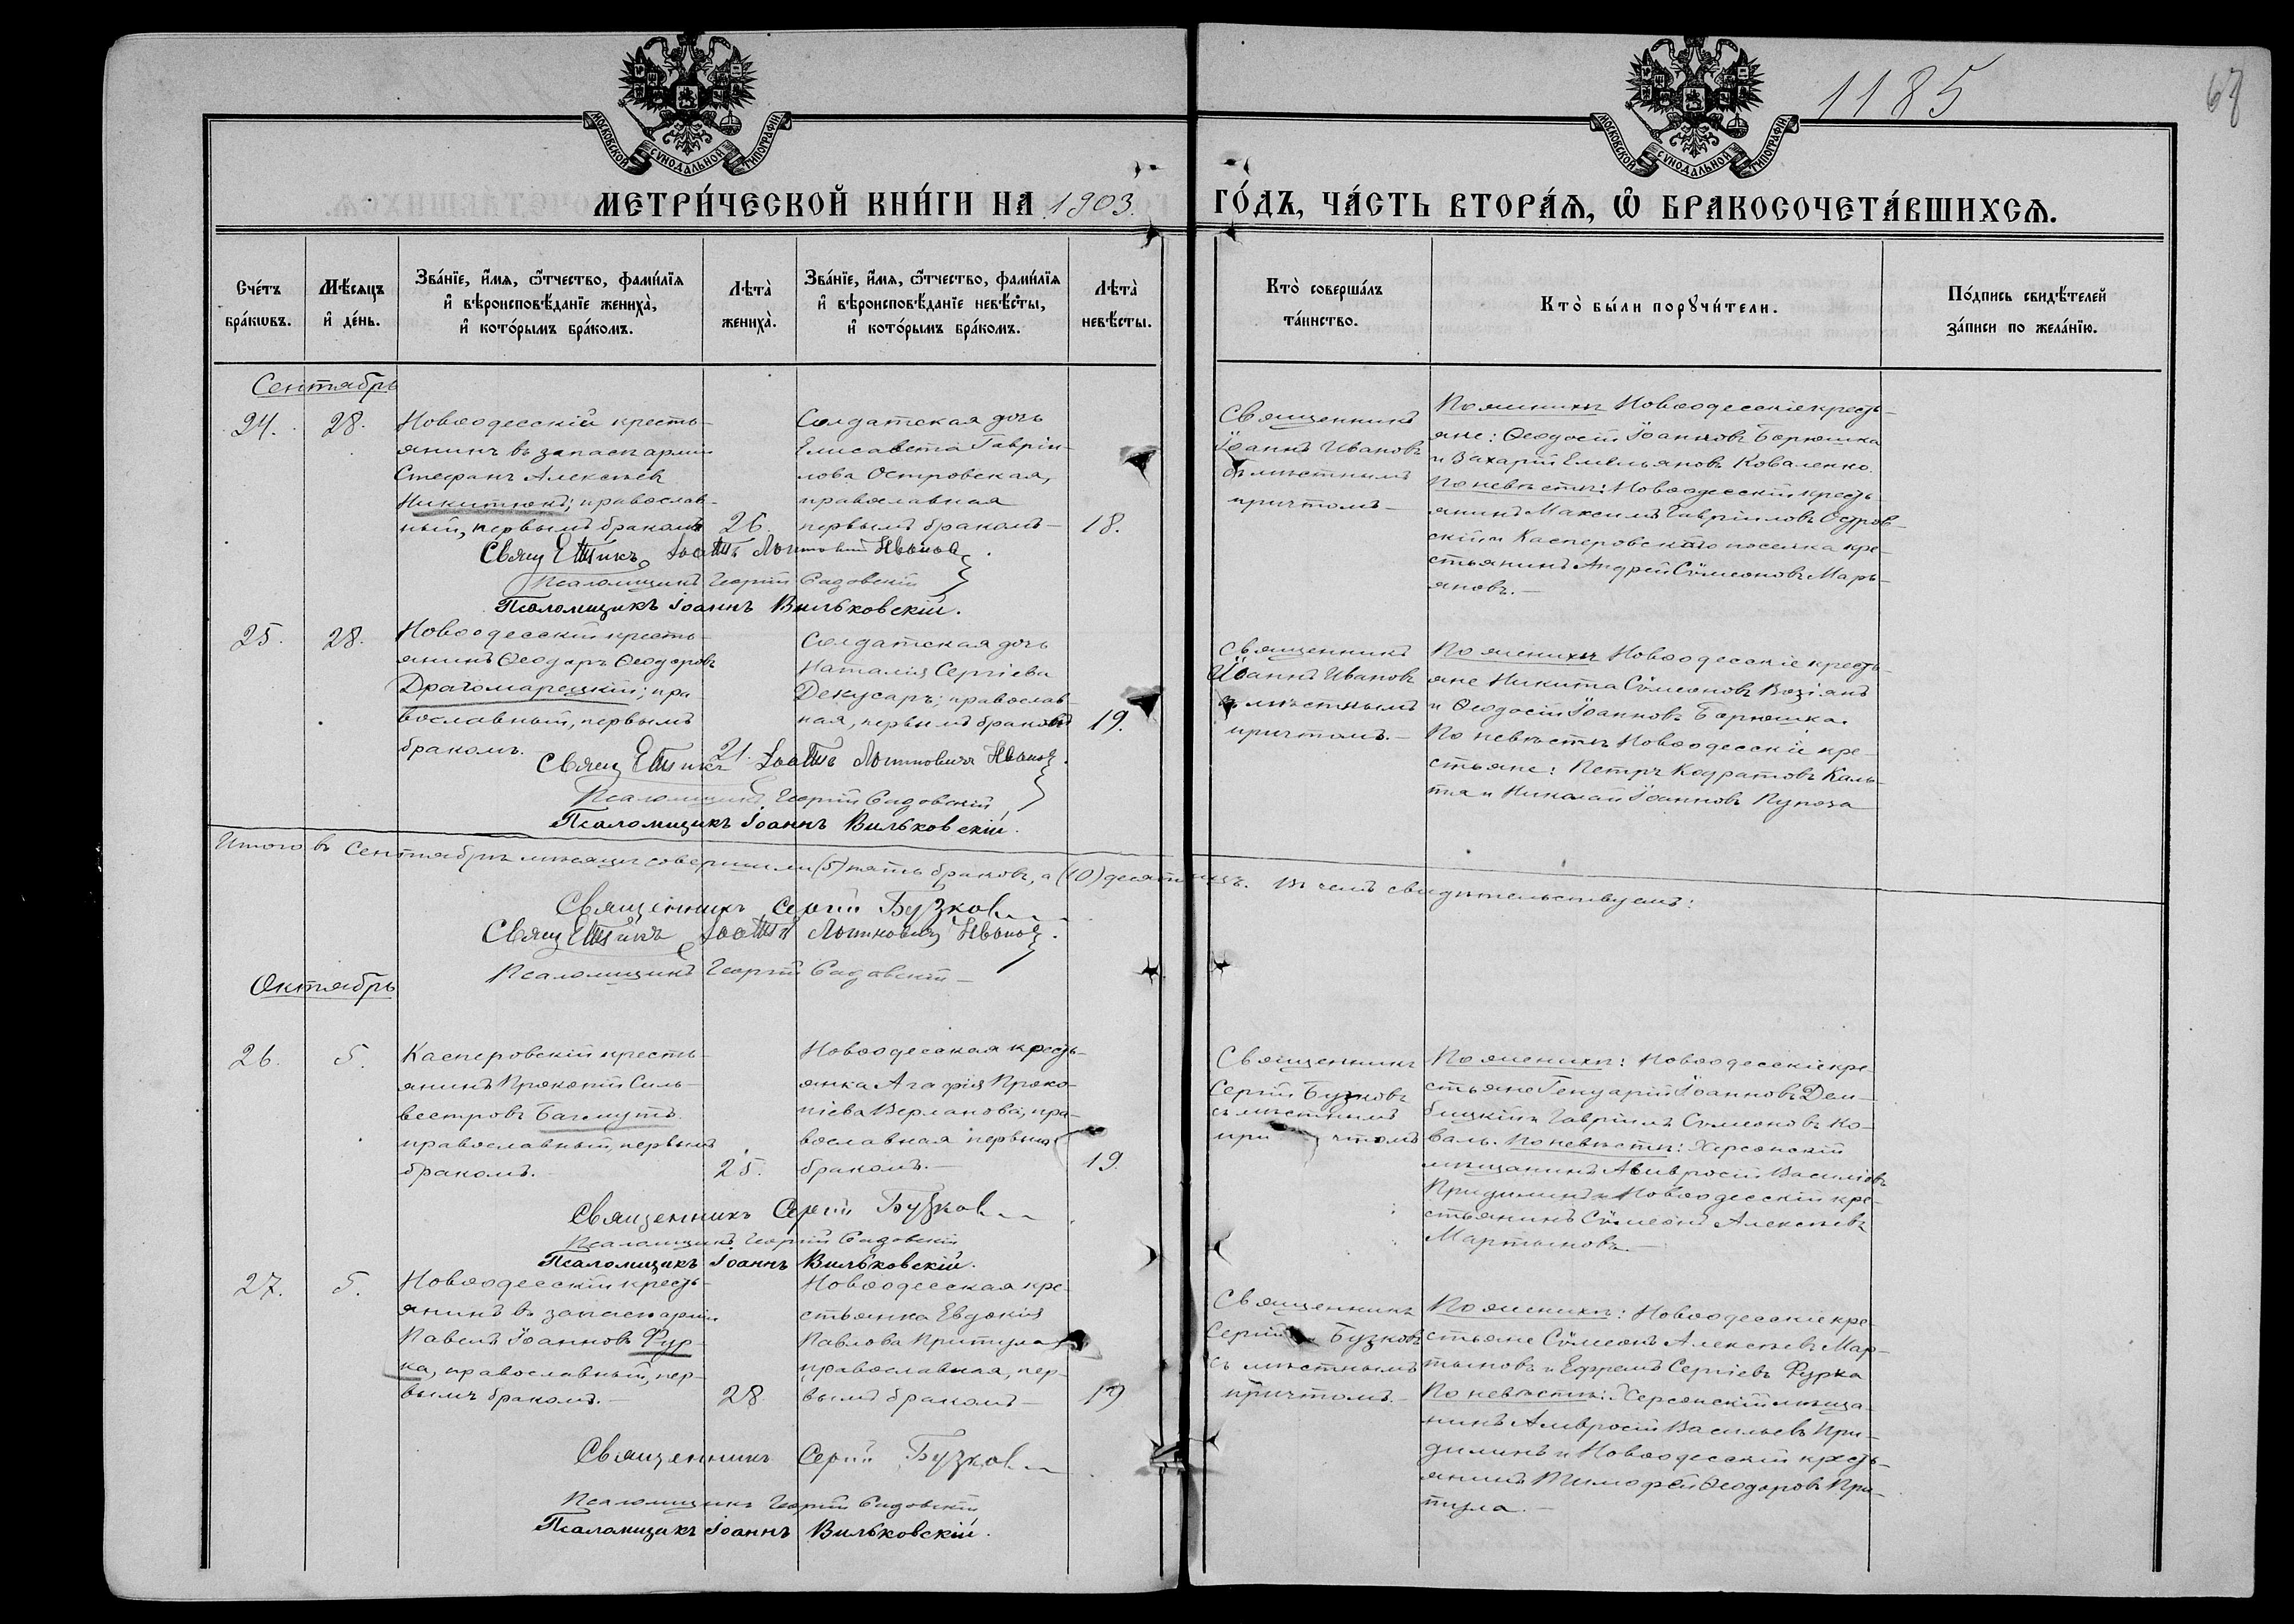 1185
67
МОСКОВСКОЙ СѴНОДАЛЬНОЙ ТИПОГРАФІИ
МОСКОВСКОЙ СѴНОДАЛЬНОЙ ТИПОГРАФІИ
МЕТРИ́ЧЕСКОЙ КНИ́ГИ НА 1903.
ГО́ДЪ, ЧА́СТЬ ВТОРА́Ѧ, Ѽ БРАКОСОЧЕТА́ВШИХСѦ.
Сче́тъ бра́кѡвъ.
Мѣ́сяцъ и҆ де́нь.
Зва́нїе, и҆́мѧ, ѻ҆́тчество, фами́лїѧ
и҆ вѣроисповѣ́данїе жениха̀,
и҆ кото́рымъ бра́комъ.
Лѣта̀ жениха̀.
Зва́нїе, и҆́мѧ, ѻ҆́тчество, фами́лїѧ
и҆ вѣроисповѣ́данїе невѣ́сты,
и҆ кото́рымъ бра́комъ.
Лѣта̀ невѣ́сты.
Кто̀ соверша́лъ та́инство.
Кто̀ бы́ли порꙋчи́тели.
По́дпись свидѣ́телей
за́писи по жела́нїю.
Сентябрь
24.
28.
Новоодесскій кресть-
янинъ въ запасѣ арміи
Стефанъ Алексѣевъ
Никитюкъ; православ-
ный, первымъ бракомъ
26.
Солдатская дочь
Елисавета Гавріи-
лова Островская,
православная
первымъ бракомъ —
18.
Священникъ
Іоаннъ Ивановъ
съ мѣстнымъ
причтомъ —
По женихѣ Новоодесскіе кресть-
яне: Ѳеодосій Іоанновъ Борюшка
и Захарій Емельяновъ Коваленко.
По невѣстѣ: Новоодесскій кресть-
янинъ Максимъ Гавріиловъ Остров-
скій и Касперовскаго поселка кре-
стьянинъ Андрей Сѵмеоновъ Марь-
яновъ. —
Священникъ Іоаннъ Ивановъ
Псаломщикъ Георгій Садовскій
Псаломщикъ Іоаннъ Вильковскій.
25.
28.
Новоодесскій кресть-
янинъ Ѳеодоръ Ѳеодоровъ
Драгомарецкій; пра-
вославный, первымъ
бракомъ.
21.
Солдатская дочь
Наталія Сергіева
Декусаръ; православ-
ная, первымъ бракомъ
19.
Священникъ
Іоаннъ Ивановъ
съ мѣстнымъ
причтомъ. —
По женихѣ Новоодесскіе кресть-
яне Никита Сѵмеоновъ Возіянъ
и Ѳеодосій Іоанновъ Борюшка.
По невѣстѣ Новоодесскіе кре-
стьяне: Петръ Кодратовъ Каль-
и Николай Іоанновъ
Священникъ Іоаннъ Ивановъ.
Псаломщикъ Георгій Садовскій
Псаломщикъ Іоаннъ Вильковскій.
Итого въ Сентябрѣ мѣсяцѣ совершили (5) пять браковъ, а (10) десять лицъ. Въ чемъ свидѣтельствуемъ:
Священникъ Сергій Бузковъ
Священникъ Іоаннъ Ивановъ.
Псаломщикъ Георгій Садовскій —
Октябрь
26.
5.
Касперовскій кресть-
янинъ Прокопій Силь-
вестровъ Багмутъ
православный, первымъ
бракомъ. —
25.
Новоодесская кресть-
янка Агафія Проко-
піева Верланова, пра-
вославная первымъ
бракомъ. —
19.
Священникъ
Сергій Бузковъ
съ мѣстнымъ
причтомъ
По женихѣ: Новоодесскіе кре-
стьяне Генуарій Іоанновъ Дем-
бицкій и Гавріилъ Сѵмеоновъ Ко-
валь. По невѣстѣ: Херсонскій
мѣщанинъ Амвросій Василіевъ
Придилинъ и Новоодесскій кре-
стьянинъ Сѵмеонъ Алексѣевъ
Мартыновъ. —
Священникъ Сергій Бузковъ
Псаломщикъ Георгій Садовскій
Псаломщикъ Іоаннъ Вильковскій.
27.
5.
Новоодесскій кресть-
янинъ въ запасѣ арміи
Павелъ Іоанновъ Фур-
ка, православный, пер-
вымъ бракомъ. —
28.
Новоодесская кре-
стьянка Евдокія
Павлова Притула
православная, пер-
вымъ бракомъ —
19
Священникъ
Сергій Бузковъ
съ мѣстнымъ
причтомъ. —
По женихѣ: Новоодесскіе кре-
стьяне Сѵмеонъ Алексѣевъ Мар-
тыновъ и Ефремъ Сергіевъ Фурка
По невѣстѣ: Херсонскій мѣща-
нинъ Амвросій Васильевъ При-
дилинъ и Новоодесскій кресть-
янинъ Тимофей Ѳеодоровъ При-
тула. —
Священникъ Сергій Бузковъ
Псаломщикъ Георгій Садовскій
Псаломщикъ Іоаннъ Вильковскій.